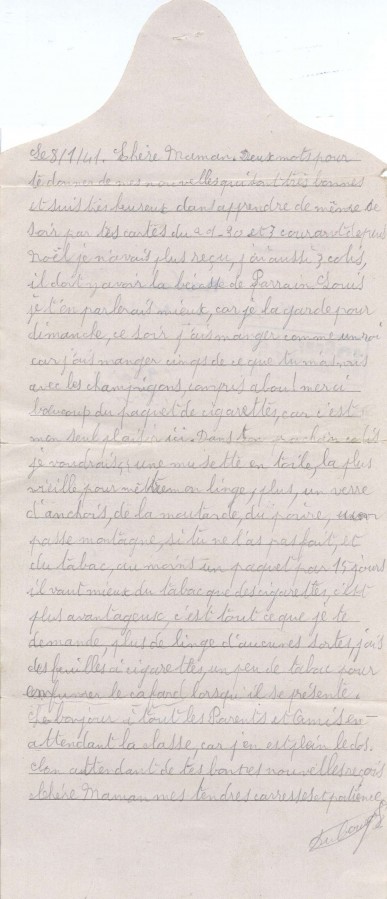 Le 8/1/41. Chère Maman. Deux mots pour
te donner de mes nouvelles qui sont très bonnes
et suis très heureux dans apprendre de même ce
soir par tes cartes du 29-30 et 3 courant depuis
Noël je n'avais plus reçu, j'ai aussi 3 colis,
il doit y avoir la bécasse de Parrain Louis
je t'en parlerais mieux, car je la garde pour
dimanche, ce soir j'ais manger comme un roi
car j'ais manger de ce que tu m'a mis
avec les champignons, merci
beaucoup du paquet de cigarettes, car c'est
mon seul plaisir ici. Dans ton prochain colis
je voudrais; une musette en toile, la plus
vieille, pour mettre mon linge, plus, un verre
d'anchois, de la moutarde, du poivre, mon
passe montagne, si tu ne l'as pas fait, et
du tabac, au moins un paquet par 15 jours
il vaut mieux du tabac que des cigarettes, c'est
plus avantageux, c'est tout ce que je te
demande, plus de linge d'aucunes sortes, j'ais
des feuilles à cigarettes un peu de tabac pour
enfumer le cafard lorsqu'il se présente.
Le bonjour à tout les Parents et Amis en
attendant la classe, car j'en est plein le dos.
En attendant de tes bonnes nouvelles reçois
Chère Maman mes tendres carresses et patience